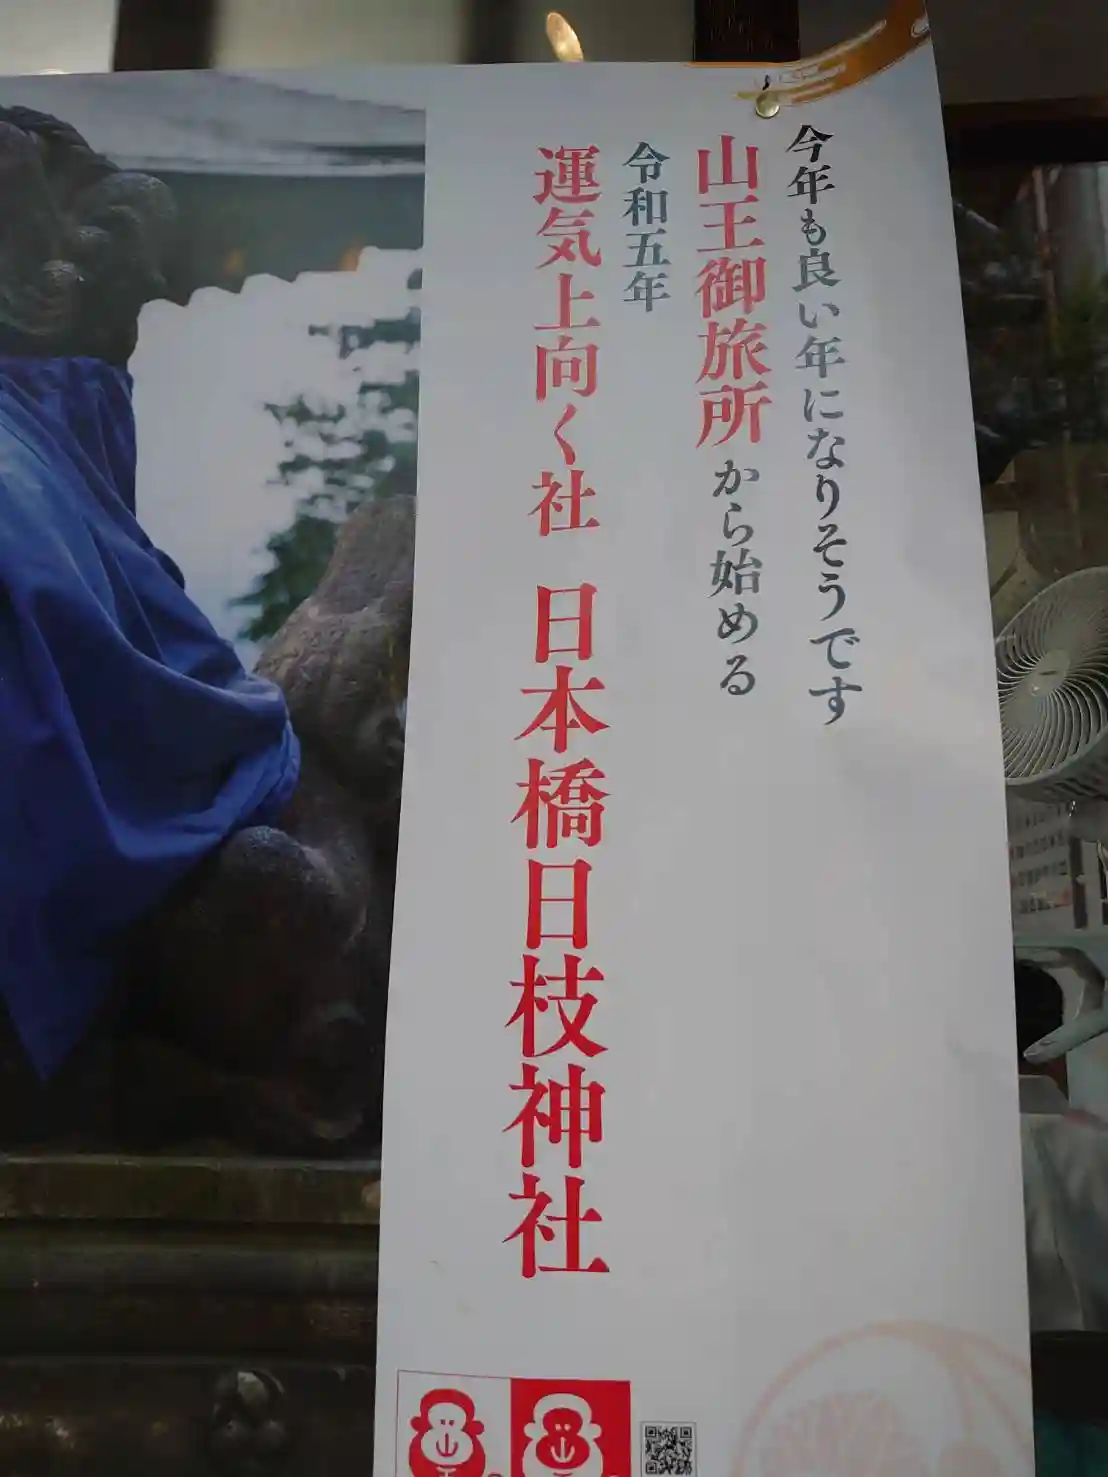 今年も良い年になりそうです
山王御旅所から始める
令和五年
運気上向く社 日本橋日枝神社